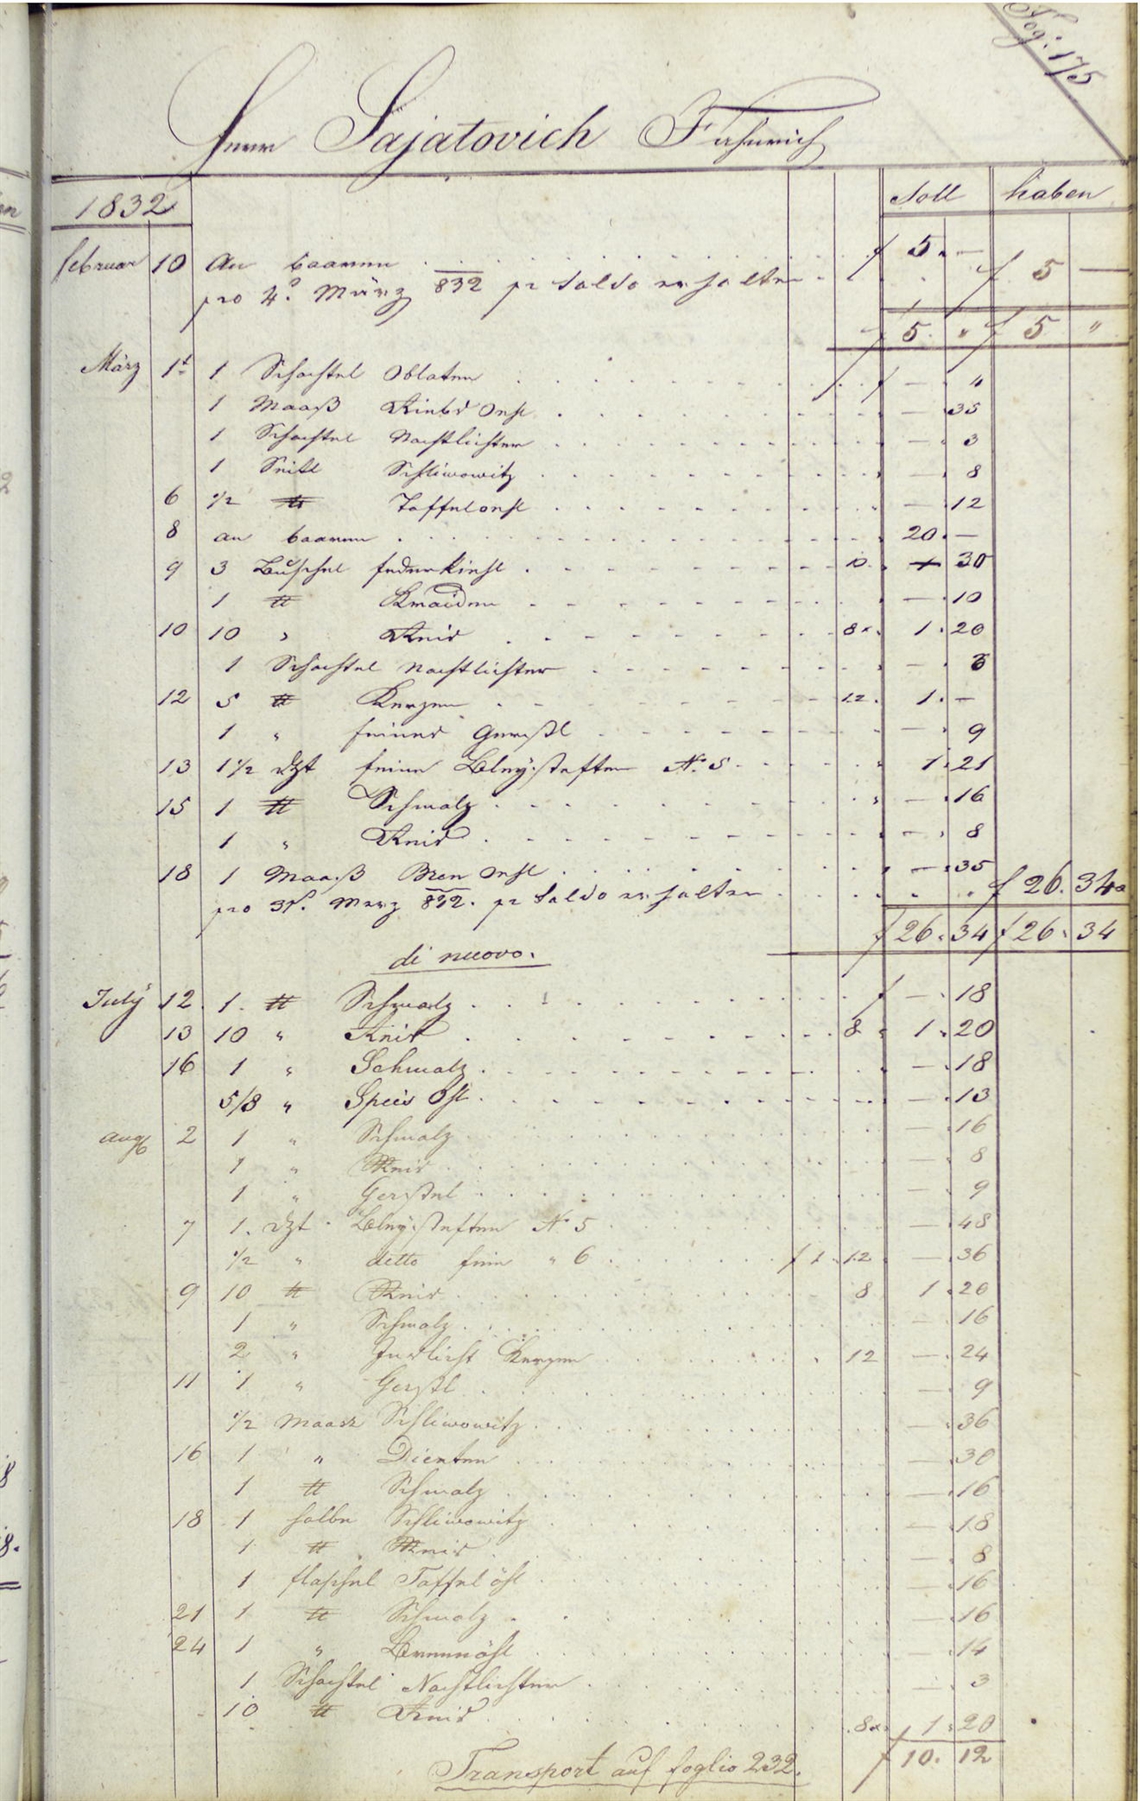 Fog: 175
Herr Sajatovich Fähnrich
1832 Soll haben
februar 10 An baarem f 5. —
pro 4t. März 832 pr Saldo erhalten f 5 —
f 5 " f 5 "
März 1t 1 Schachtel Oblaten f — 4
1 Maaß Oehl — 35
1 Schachtel Nachtlichter — 3
1 Seitl Schliwowitz — 8
6 1/2 ℔ Taffeloehl — 12
8 an baarem 20. —
9 3 Buschel federkiehl 10. — 30
1 ℔ Kraiden — 10
10 10 " Reis 8x. 1. 20
1 Schachtel Nachtlichter — 3
12 5 ℔ Kerzen 12. 1. —
1 " feines Gerstl — 9
13 1 1/2 dzt feine Bleystiften No. 5 1. 21
15 1 ℔ Schmalz — 16
1 " Reis — 8
18 1 Maaß Bren Oehl — 35
pro 31t. Merz 832. pr Saldo erhalten f 26. 34
f 26. 34 f 26. 34
di nuovo.
July 12. 1. ℔ Schmalz f — 18
13 10 " Reis 8. 1. 20
16 1 " Schmalz — 18
5/8 " Speis Öhl — 13
aug 2 1 " Schmalz — 16
1 " Reis — 8
1 " Gerstel — 9
7 1. dzt. Bleystiften No 5 — 48
1/2 " detto fein " 6 f 1. 12 — 36
9 10 ℔ Reis 8 1. 20
1 " Schmalz — 16
2 " Kerzen 12 — 24
11 1 " Gerstl — 9
1/2 Maass Schliwowitz — 36
16 1 " — 30
1 ℔ Schmalz — 16
18 1 halbe Schliwowitz — 18
1 ℔ Reis — 8
1 flaschel Taffel öhl — 16
21 1 ℔ Schmalz — 16
24 1 " Brennöhl — 14
1 Schachtel Nachtlichter — 3
10 ℔ Reis 8x. 1. 20
Transport auf foglio 232. f 10. 12